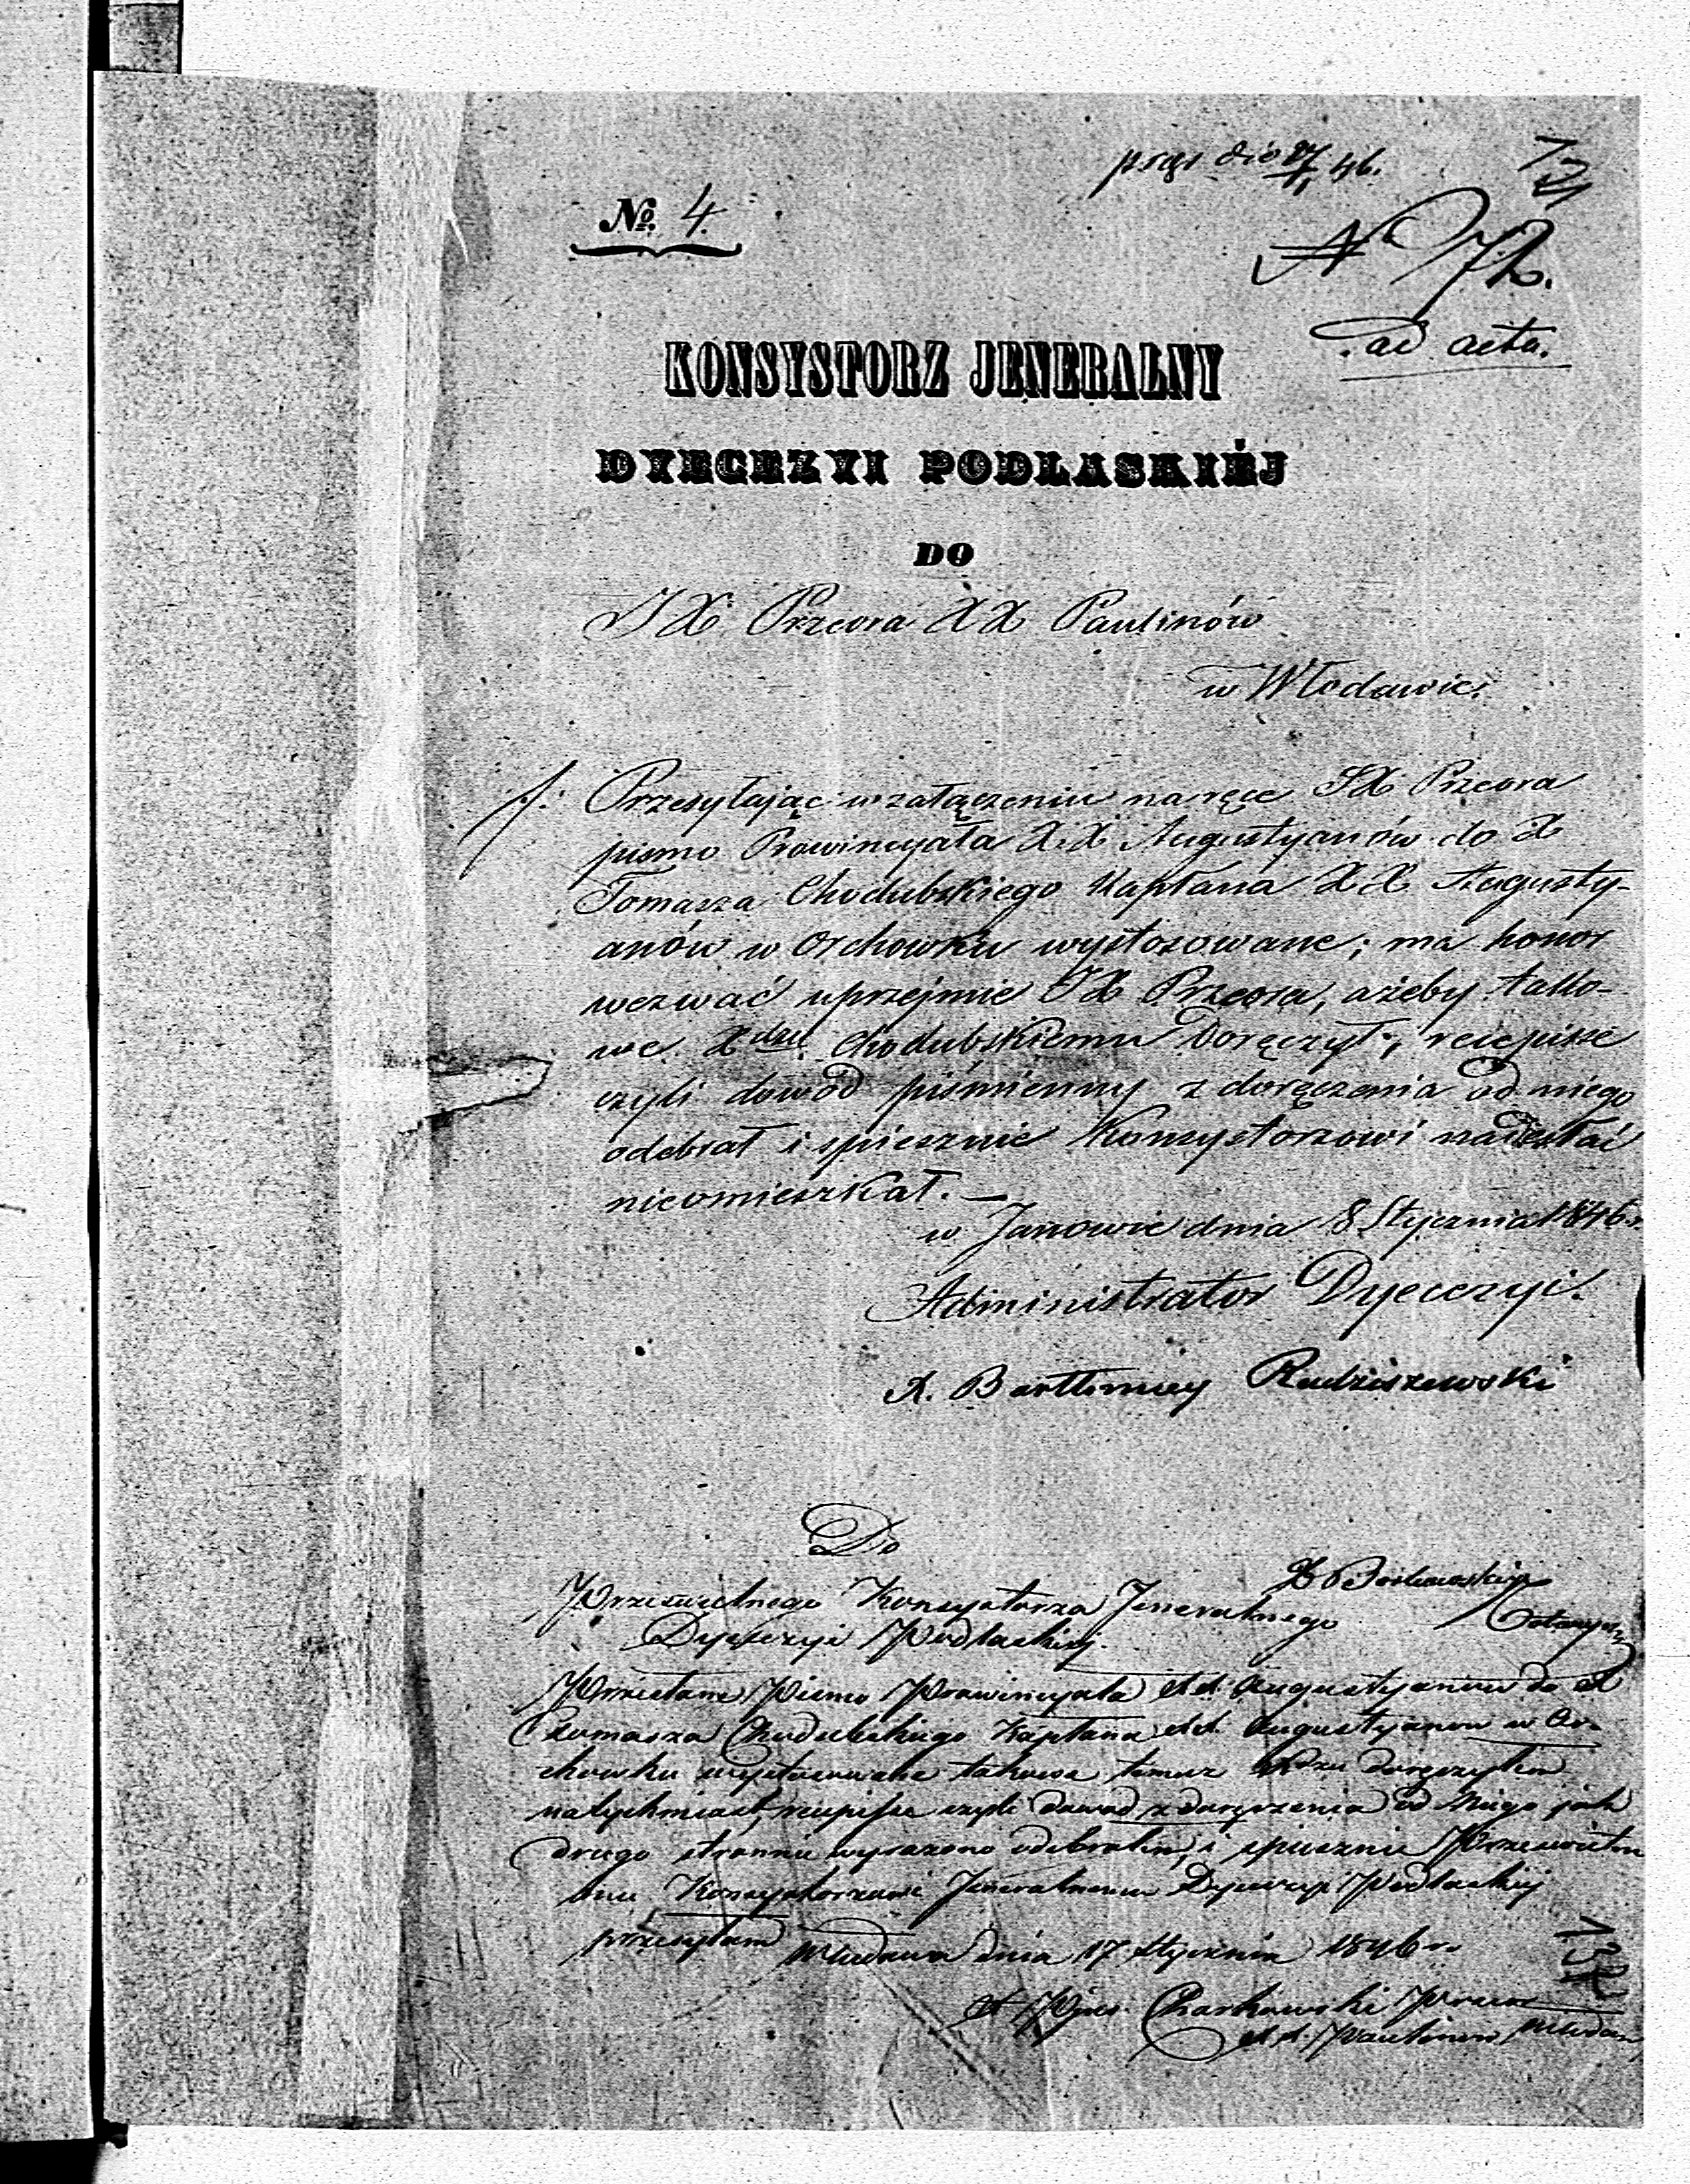 dio 27/1 46.
№ 4.
N 72.
ad acta.
KONSYSTORZ JENERALNY
DYECEZYI PODLASKIÉJ
DO
JX. Przeora XX Paulinów
w Włodawie.
Przesyłając w załączeniu na ręce JX Przeora
pismo Prowincyała XX Augustyanów do X
Tomasza Chodubskiego Kapłana XX Augusty-
anów w Orchowku wystosowane; ma honor
wezwać uprzejmie JX Przeora, ażeby tako-
we Xdzu Chodubskiemu doręczył, recepisse
czyli dowód piśmienny z doręczenia od niego
odebrał i spiesznie Konsystorzowi nadesłać
nieomieszkał. —
w Janowie dnia 8 Stycznia 1846 r.
Administrator Dyecezyi.
X. Bartłomiey Radziszewski
Do
Prześwietnego Konsystorza Jeneralnego
Dyecezyi Podlaskiey.
Przesłane Pismo Prowincyała XX. Augustyanow do X
Tomasza Chodubskiego Kapłana XX. Augustyanow w Or-
chowku wystosowane takowe temuz Xdzu doręczyłem
natychmiast, recepisse czyli dowod z doręczenia od Niego jak
drugo stronnie wyrażono odebrałem, i spiesznie Prześwietne
mu Konsystorzowi Jeneralnemu Dyecezyi Podlaskiey
przesyłam Włodawa dnia 17 Stycznia 1846 r.
X Czarkowski Przeor
XX. Paulinow Włodaw
132